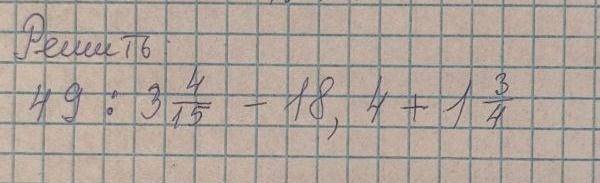 Решить:
49 : 3 4/15 - 18,4 + 1 3/4